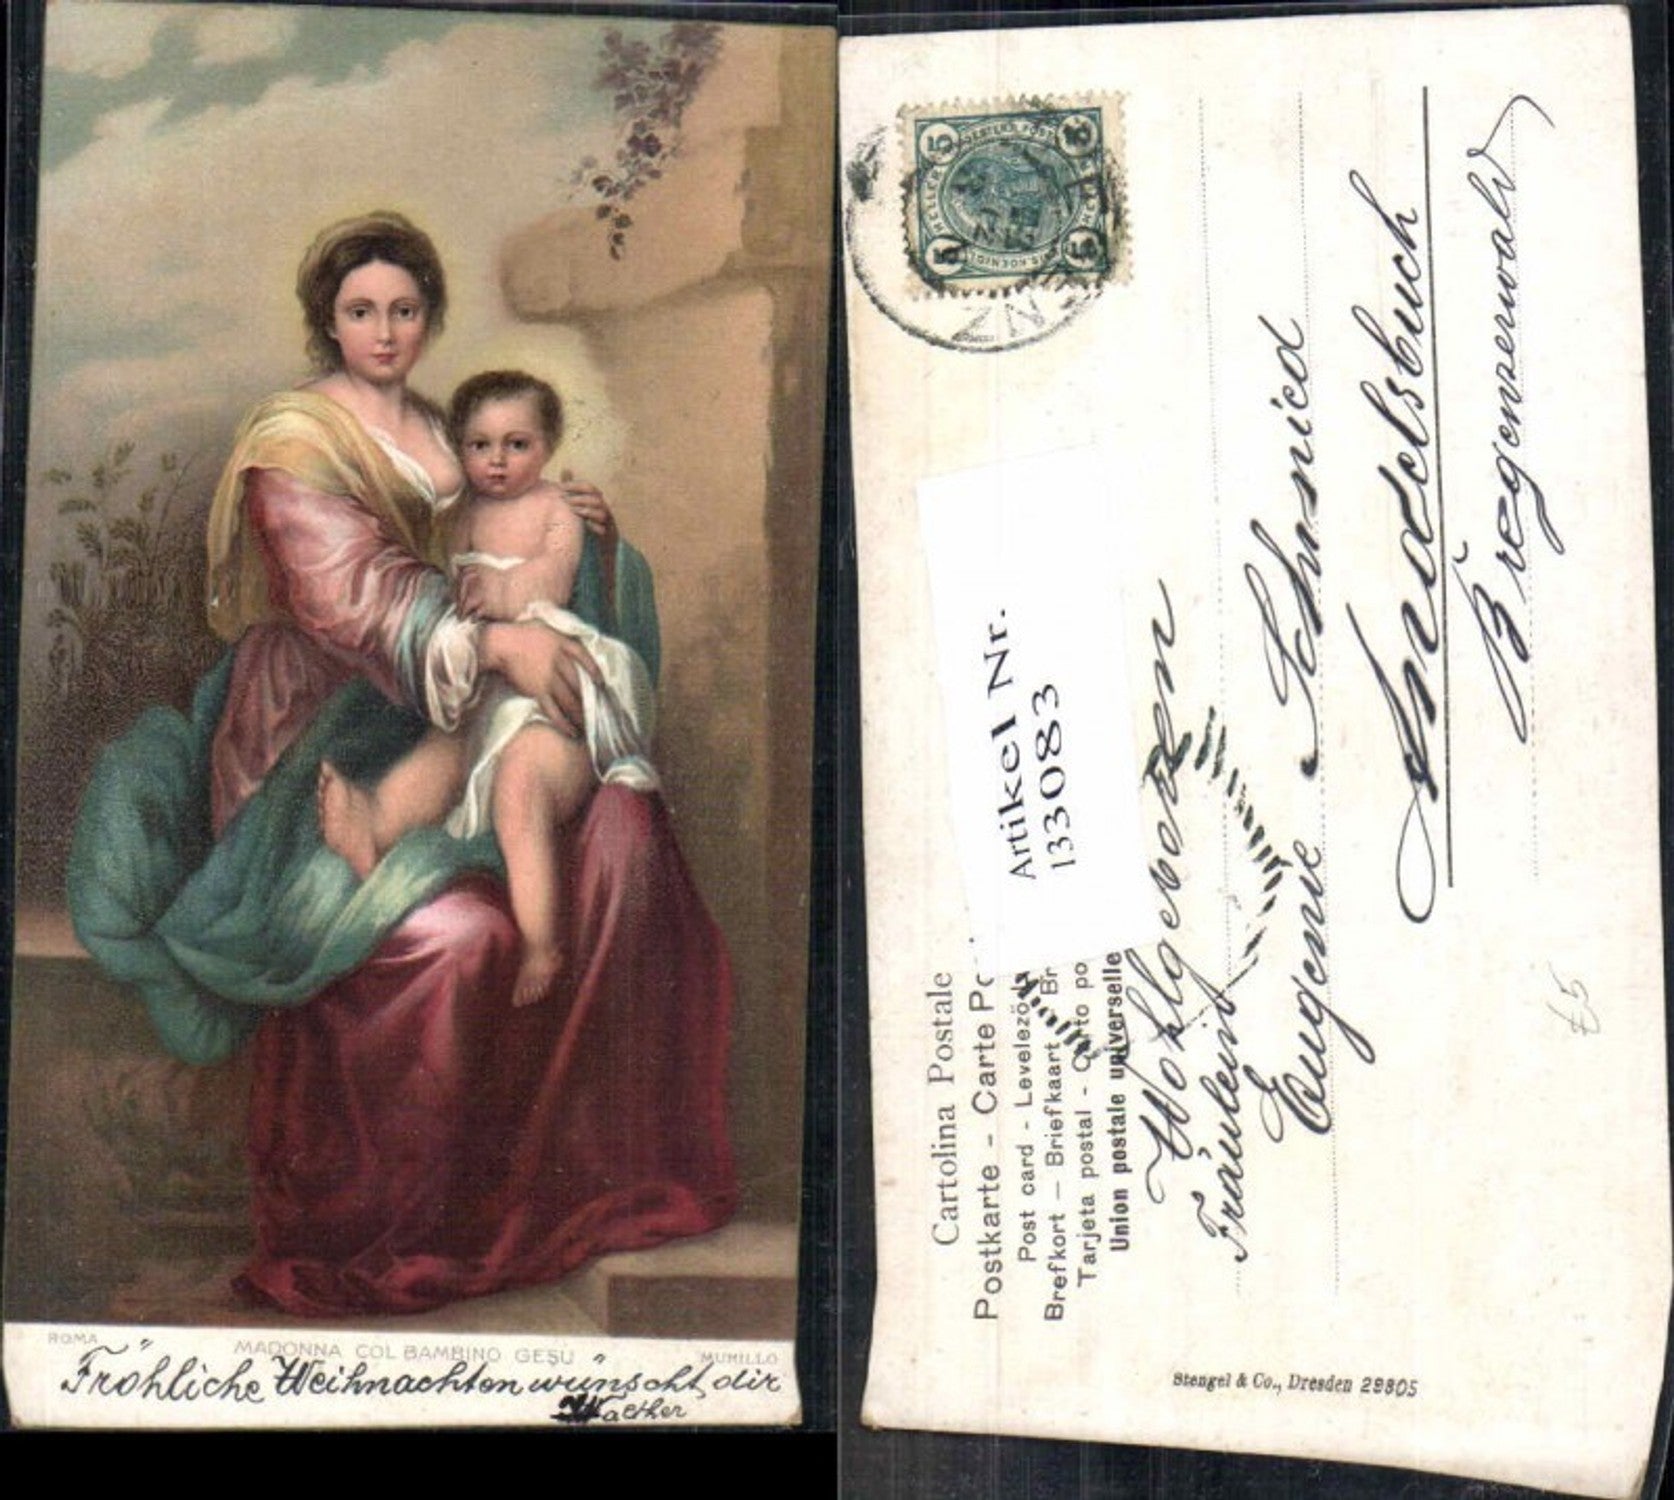 ROMA
MADONNA COL BAMBINO GESU
MURILLO
Fröhliche Weihnachten wünscht dir
Walther
5
5
5
5
HELLER
Cartolina Postale
Postkarte - Carte Po
Post card - Levelező
Brefkort — Briefkaart Br
Tarjeta postal - po
Union postale universelle
Artikel Nr.
133083
Wohlgeboren
Fräulein
Eugenie Schmied
Andelsbuch
Bregenzerwald
Stengel & Co., Dresden 29805